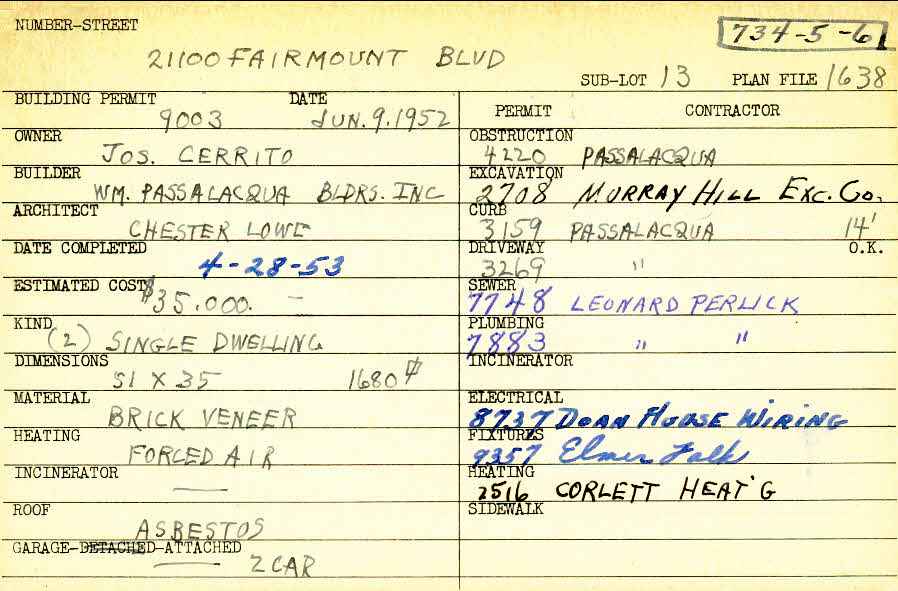 NUMBER-STREET
734-5-61
21100 FAIRMOUNT BLVD
SUB-LOT 13 PLAN FILE 1638
BUILDING PERMIT DATE
9003 JUN. 9. 1952
OWNER
JOS. CERRITO
BUILDER
WM. PASSALACQUA BLDRS. INC
ARCHITECT
CHESTER LOWE
DATE COMPLETED
4-28-53
ESTIMATED COST
$35.000. —
KIND
(2) SINGLE DWELLING
DIMENSIONS
51 X 35 1680
MATERIAL
BRICK VENEER
HEATING
FORCED AIR
INCINERATOR
—
ROOF
ASBESTOS
GARAGE-DETACHED-ATTACHED
— 2 CAR
PERMIT CONTRACTOR
OBSTRUCTION
4220 PASSALACQUA
EXCAVATION
2708 MURRAY HILL EXC. CO.
CURB
3159 PASSALACQUA 14'
DRIVEWAY O.K.
3269 "
SEWER
7748 LEONARD PERLICK
PLUMBING
7883 " "
INCINERATOR
ELECTRICAL
8737 DOAN HOUSE WIRING
FIXTURES
9357 Elmer Falk
HEATING
2516 CORLETT HEAT'G
SIDEWALK